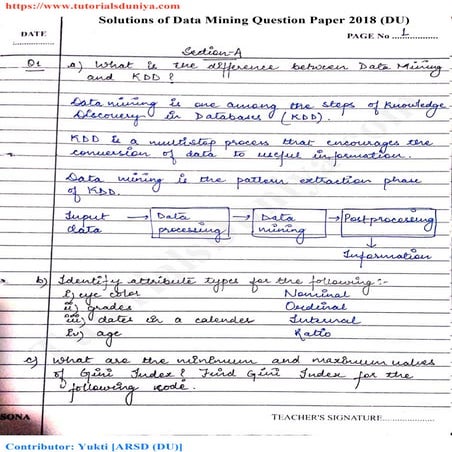 https://www.tutorialsduniya.com
Solutions of Data Mining Question Paper 2018 (DU)
DATE
PAGE No 1
Section-A
Q1 a) What is the difference between Data Mining
and KDD?
Data mining is one among the steps of Knowledge
Discovery in Databases (KDD).
KDD is a multistep process that encourages the
conversion of data to useful information.
Data mining is the pattern extraction phase
of KDD.
Input data → Data processing → Data mining → Postprocessing
↓
Information
b) Identify attribute types for the following :-
i) eye color Nominal
ii) grades Ordinal
iii) dates in a calender Interval
iv) age Ratio
c) What are the minimum and maximum values
of Gini Index? Find Gini Index for the
following node.
SONA
TEACHER'S SIGNATURE
Contributor: Yukti [ARSD (DU)]